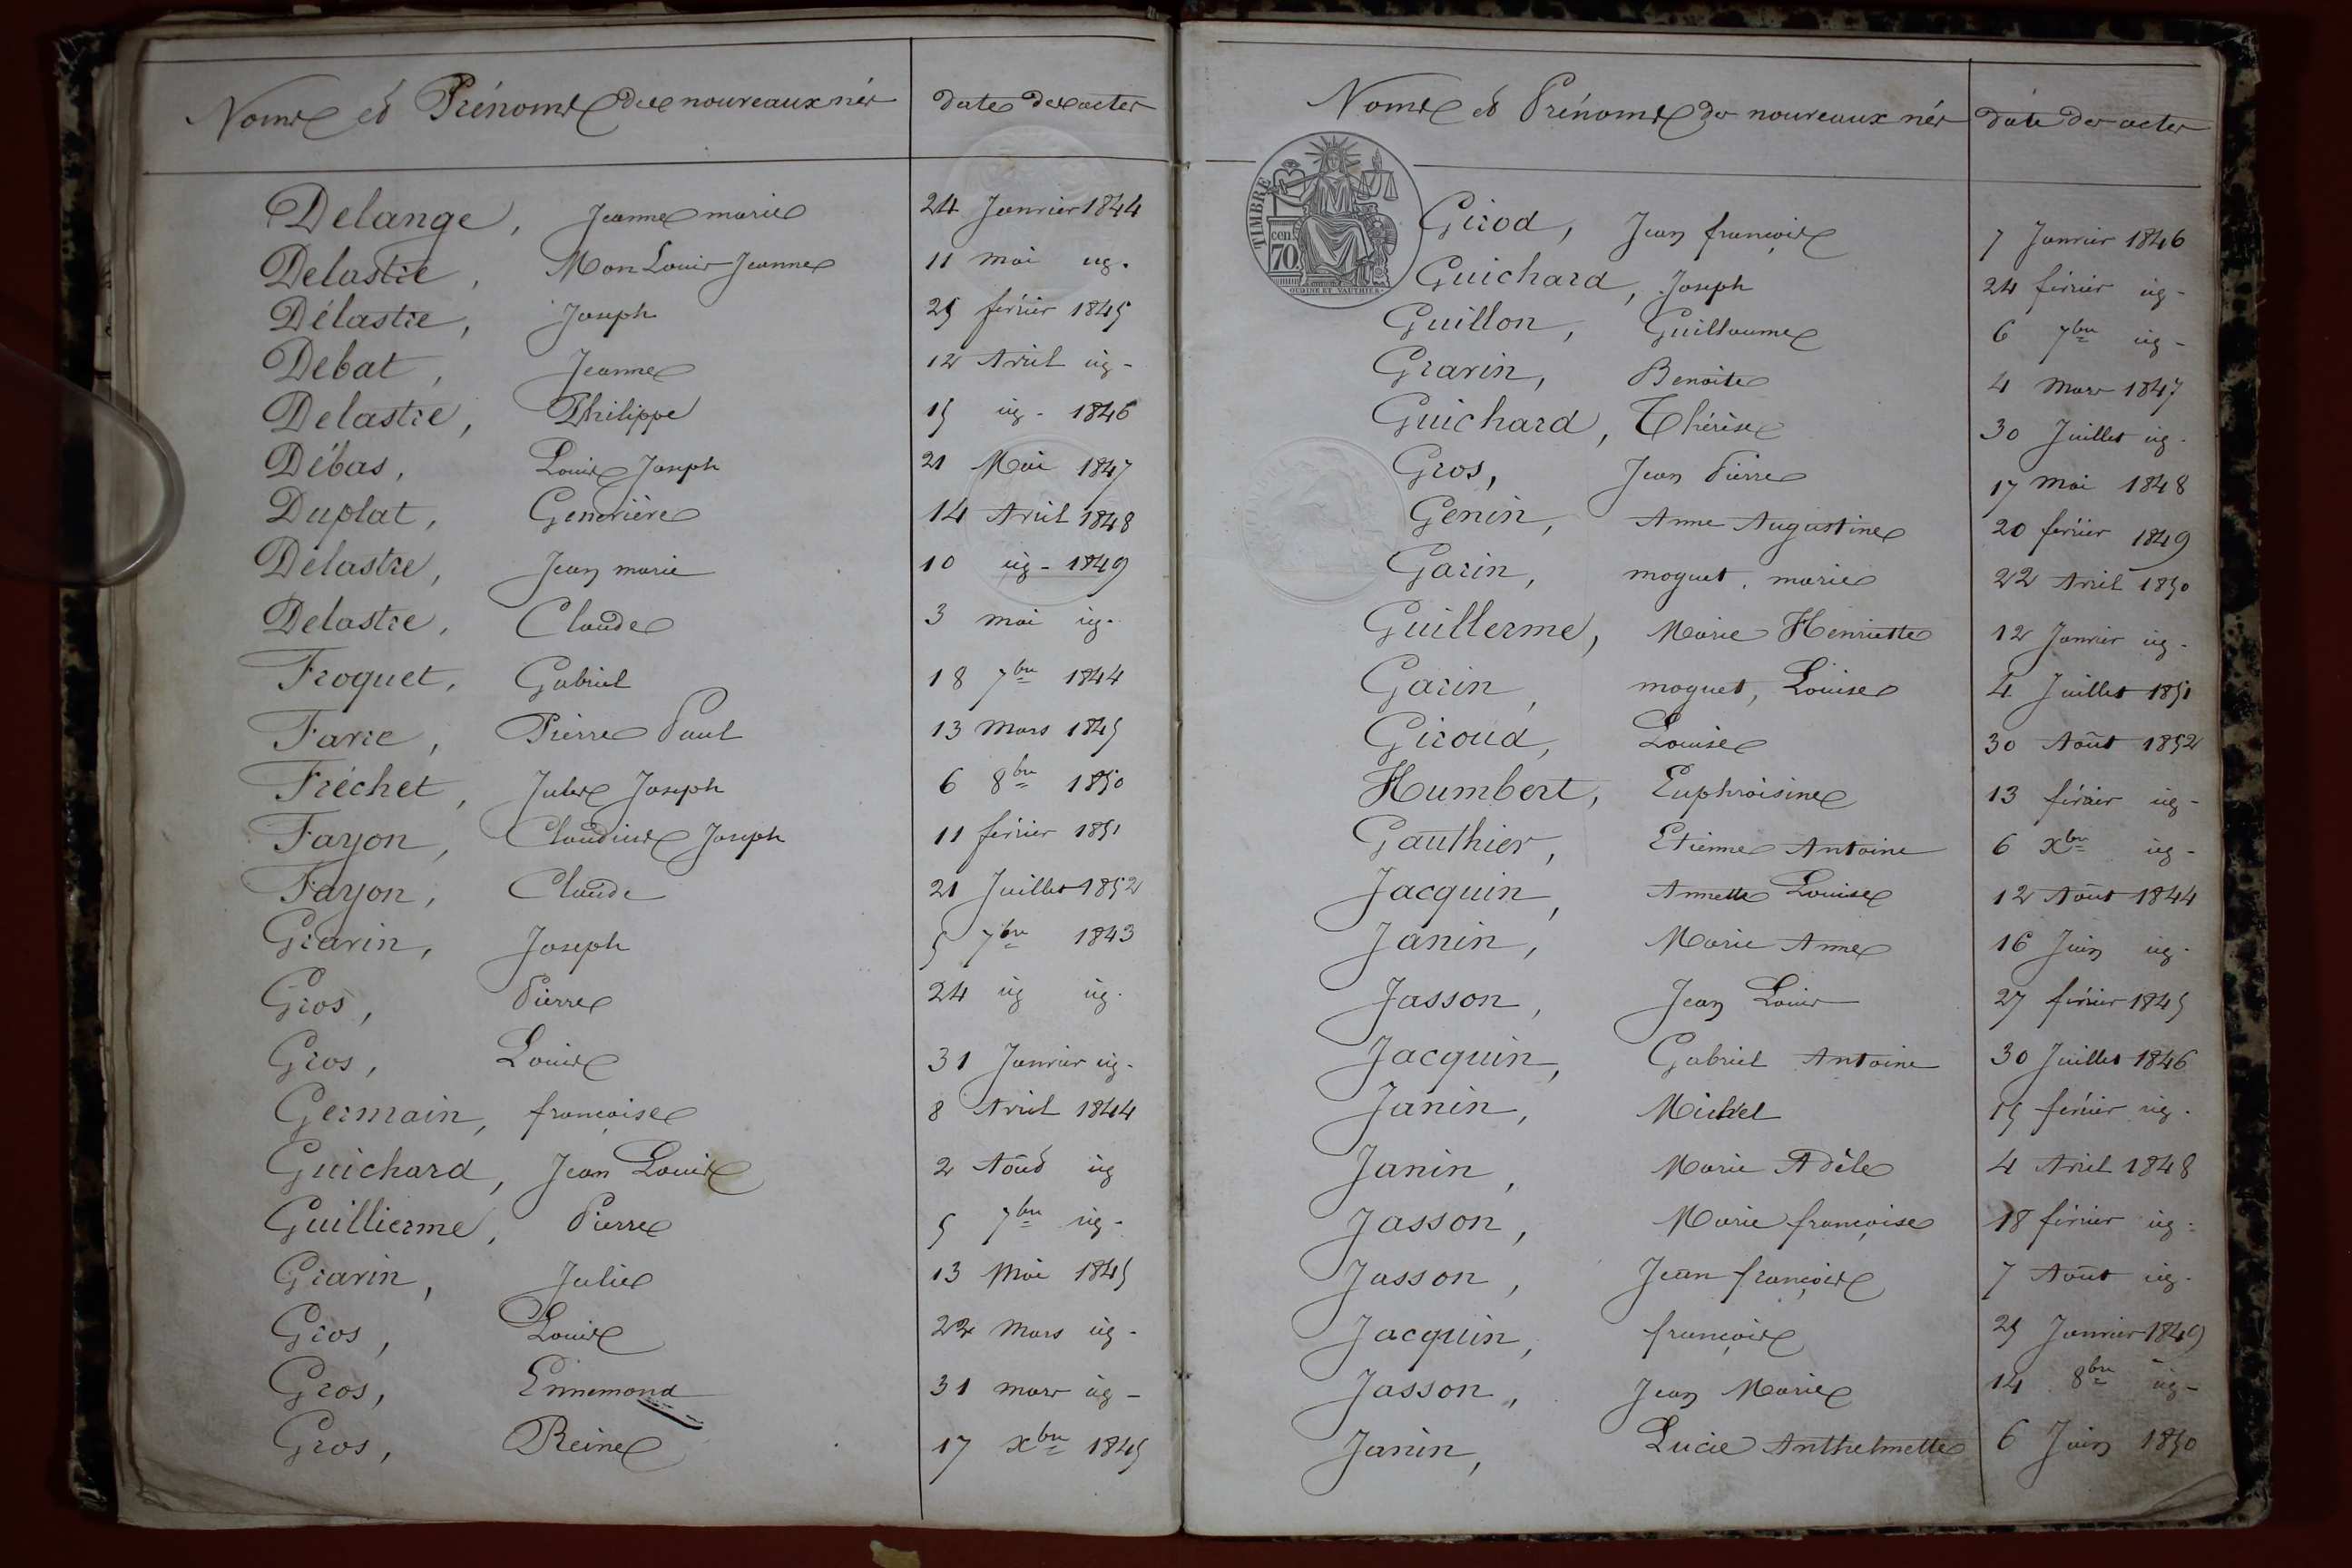 Noms et Prénoms des nouveaux nés date des actes
Delange, Jeanne marie 24 Janvier 1844
Delastre, Mon Louis Jeanne 11 mai ug.
Délastre, Joseph 25 février 1845
Debat, Jeanne 12 Avril ug -
Delastre, Philippe 15 ug - 1846
Débas, Louis Joseph 21 Mai 1847
Duplat, Genevière 14 Avril 1848
Délastre, Jean marie 10 ug - 1849
Delastre, Claude 3 mai ug.
Froquet, Gabriel 18 7bre 1844
Favre, Pierre Paul 13 Mars 1845
Fréchet, Jules Joseph 6 8bre 1850
Fayon, Claudius Joseph 11 février 1851
Fayon, Claude 21 Juillet 1852
Gravin, Joseph 5 7bre 1843
Gros, Pierre 24 ug ug.
Gros, Louis 31 Janvier ug.
Germain, françoise 8 Avril 1844
Guichard, Jean Louis 2 Août ug
Guillierme, Pierre 5 7bre ug -
Gravin, Julie 13 Mai 1845
Gros, Louis 22 Mars ug -
Gros, Ennemond 31 mars ug -
Gros, Reine 17 xbre 1845
Noms et Prénoms des nouveaux nés date des actes
TIMBRE
cen.
70
OUDINE ET VAUTHIER
Girod, Jean françois 7 Janvier 1846
Guichard, Joseph 24 février ug -
Guillon, Guillaume 6 7bre ug -
Gravin, Benoite 4 Mars 1847
Guichard, Thérèse 30 Juillet ug.
Gros, Jean Pierre 17 Mai 1848
Genin, Anne Augustine 20 février 1849
Garin, moguet, marie 22 Avril 1850
Guillerme, Marie Henriette 12 Janvier ug -
Garin, moguet, Louise 4 Juillet 1851
Giroud, Louise 30 Août 1852
Humbert, Euphroisine 13 février ug -
Gauthier, Etienne Antoine 6 xbre ug -
Jacquin, Annette Louise 12 Août 1844
Janin, Marie Anne 16 Juin ug.
Jasson, Jean Louis 27 février 1845
Jacquin, Gabriel Antoine 30 Juillet 1846
Janin, Michel 15 février ug.
Janin, Marie Adèle 4 Avril 1848
Jasson, Marie françoise 18 février ug.
Jasson, Jean françois 7 Août ug.
Jacquin, françois 25 Janvier 1849
Jasson, Jean Marie 14 8bre ug -
Janin, Lucie Anthelmette 6 Juin 1850